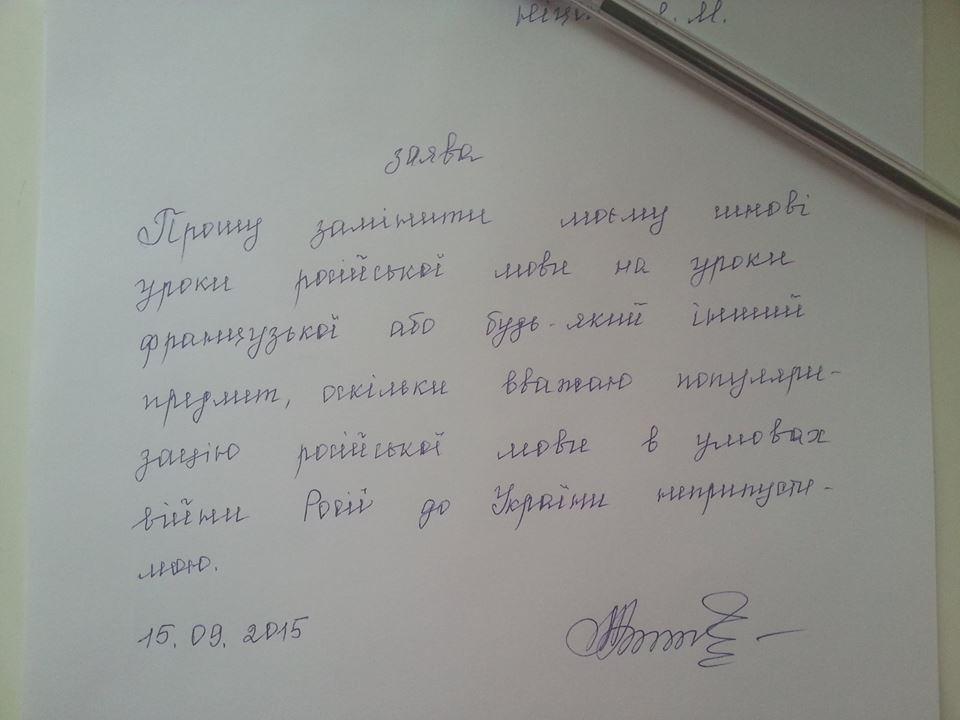 заява
Прошу замінити моєму синові
уроки російської мови на уроки
французької або будь-який інший
предмет, оскільки вважаю популяри-
зацію російської мови в умовах
війни Росії до України неприпусти-
мою.
15.09.2015